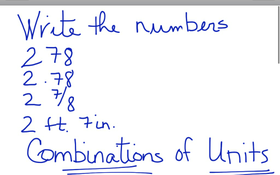 Write the numbers
278
2.78
2 7/8
2 ft. 7in.
Combinations of Units